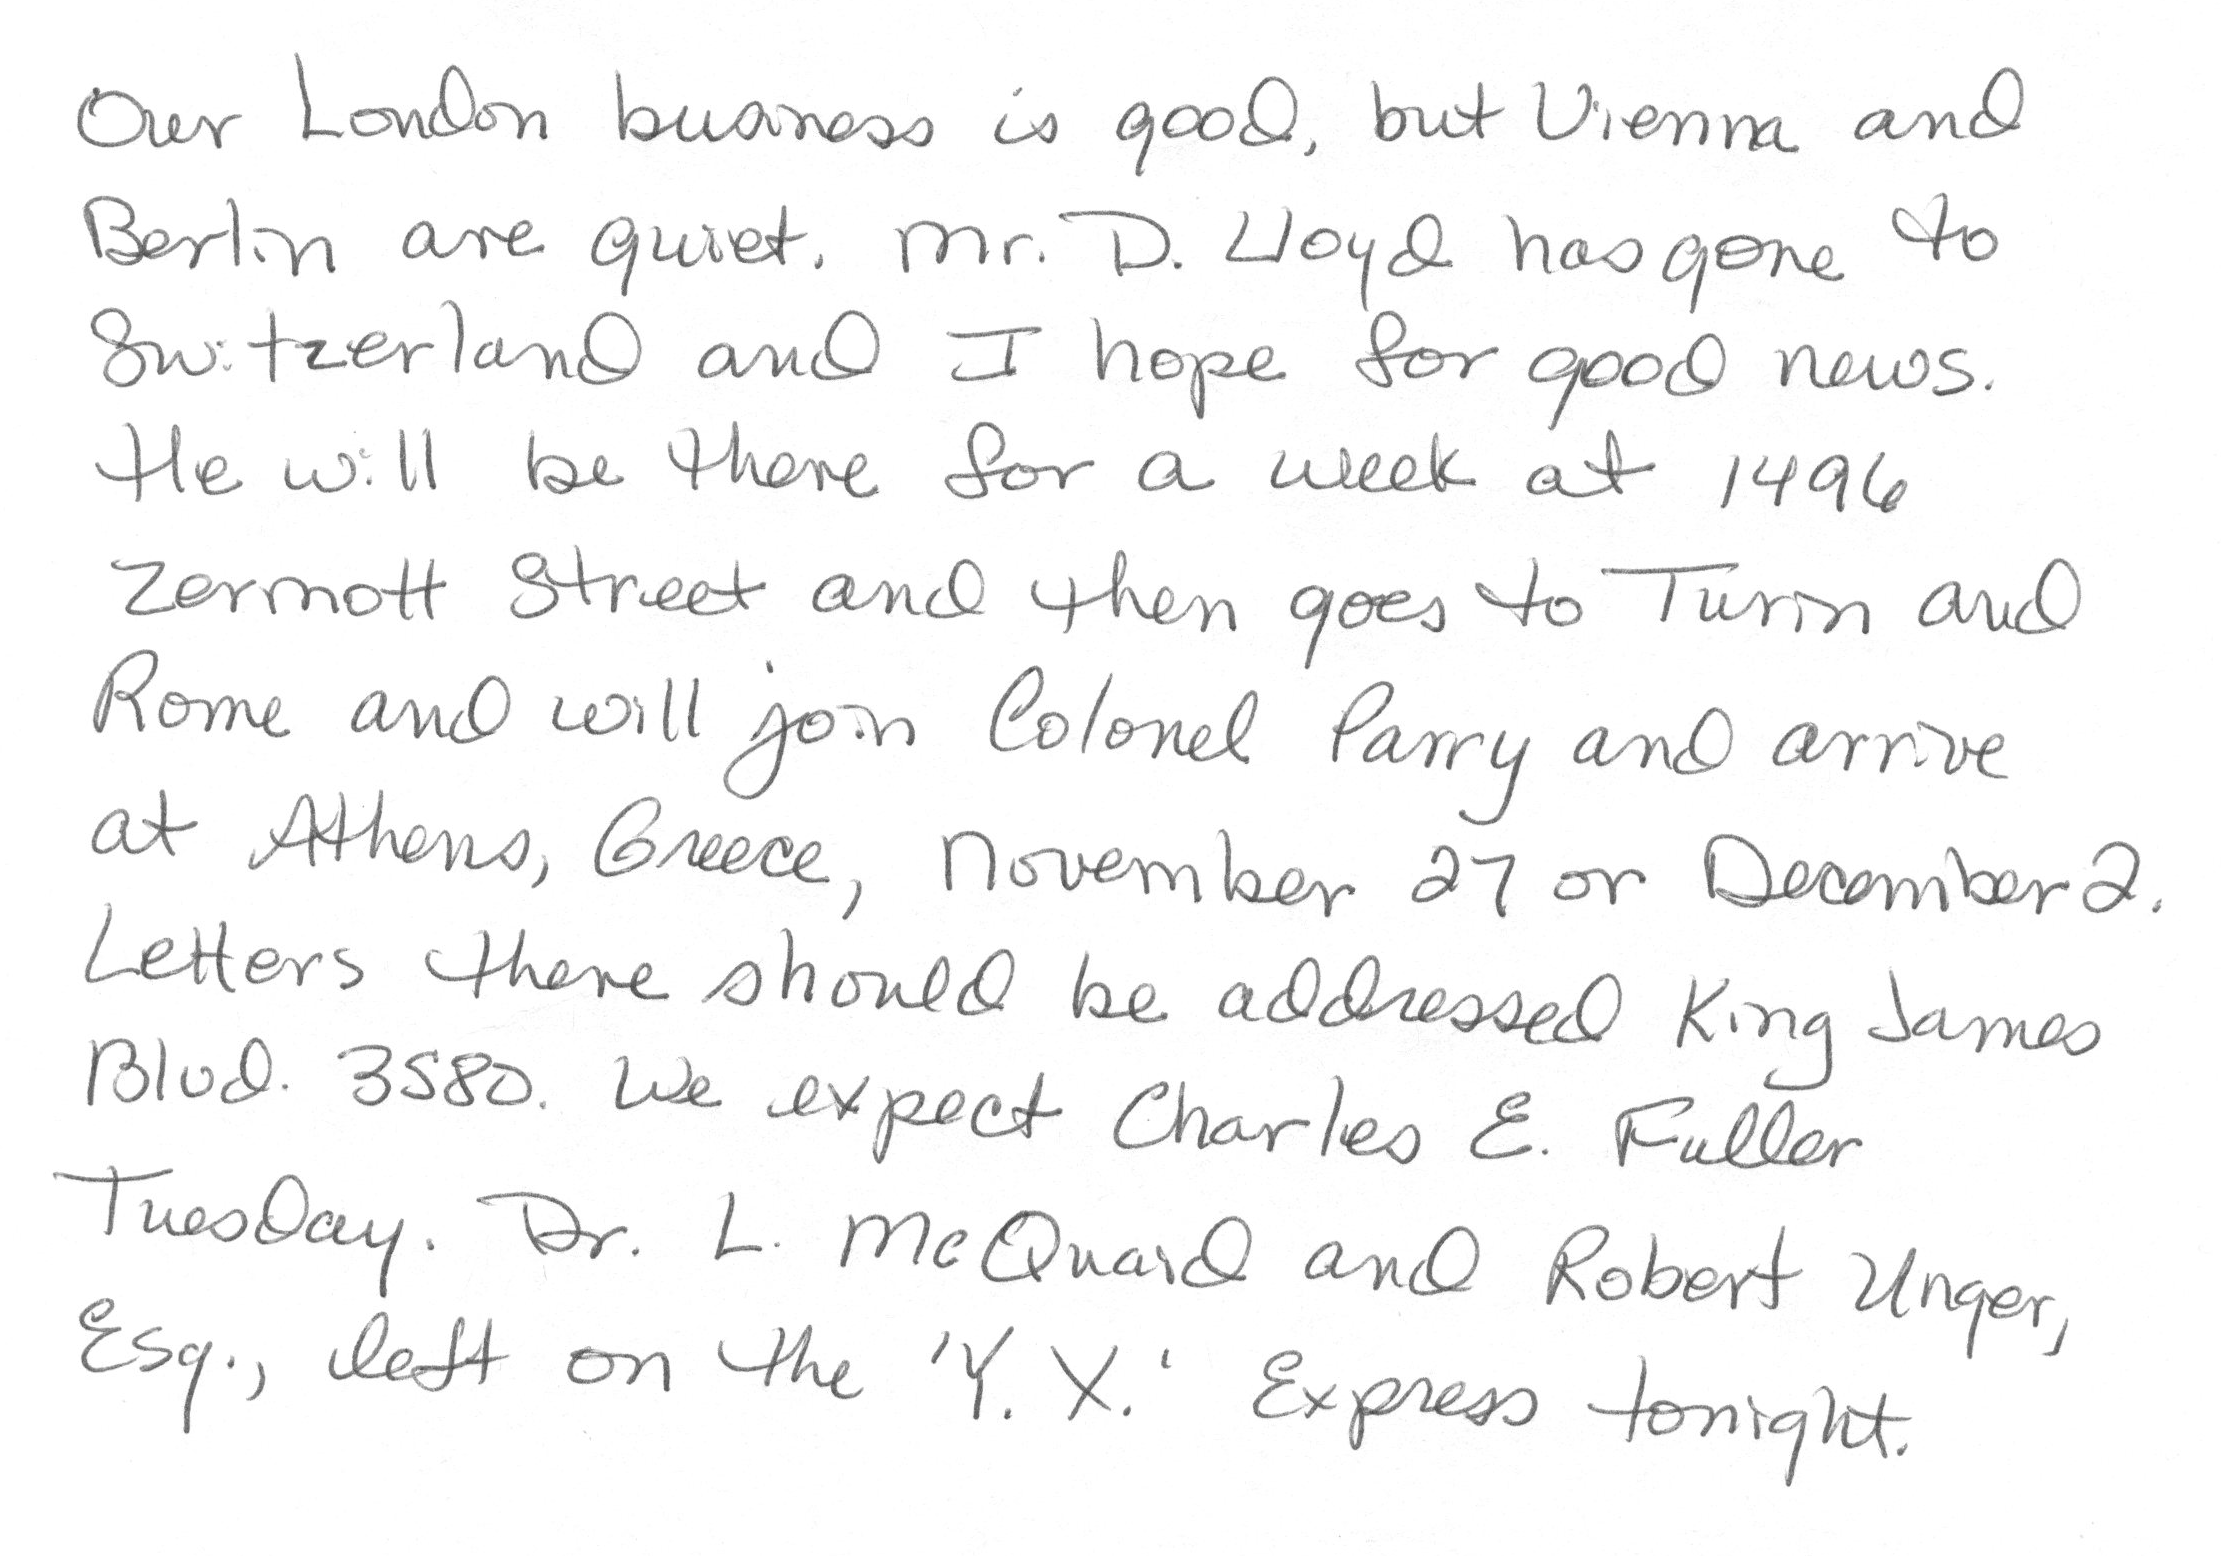 Our London business is good, but Vienna and
Berlin are quiet. Mr. D. Lloyd has gone to
Switzerland and I hope for good news.
He will be there for a week at 1496
Zermott Street and then goes to Turin and
Rome and will join Colonel Parry and arrive
at Athens, Greece, November 27 or December 2.
Letters there should be addressed King James
Blvd. 3580. We expect Charles E. Fuller
Tuesday. Dr. L. McQuaid and Robert Unger,
Esq., left on the 'Y. X.' Express tonight.